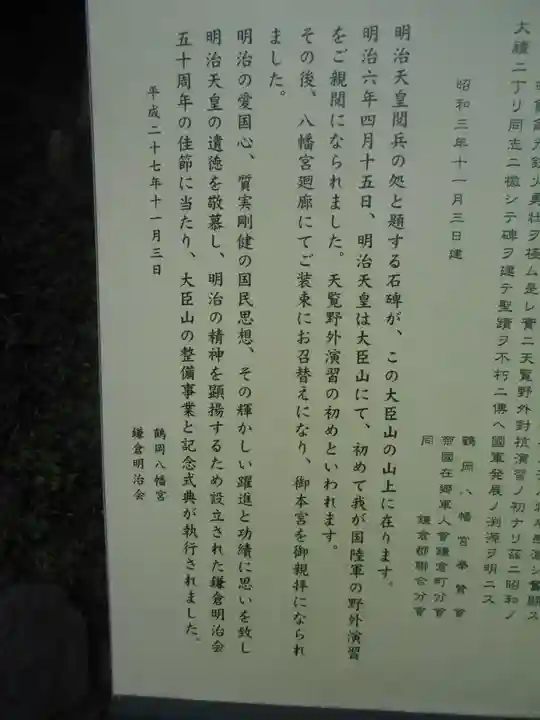 大禮ニ丁リ同志ニ檄シテ碑ヲ建テ聖蹟ヲ不朽ニ傳ヘ國軍発展ノ淵源ヲ明ニス
昭和三年十一月三日建
鶴岡八幡宮奉賛會
帝國在郷軍人會鎌倉町分會
同 鎌倉郡聯合分會
明治天皇閲兵の処と題する石碑が、この大臣山の山上に在ります。
明治六年四月十五日、明治天皇は大臣山にて、初めて我が国陸軍の野外演習
をご親閲になられました。天覧野外演習の初めといわれます。
その後、八幡宮廻廊にてご装束にお召替えになり、御本宮を御親拝になられ
ました。
明治の愛国心、質実剛健の国民思想、その輝かしい躍進と功績に思いを致し
明治天皇の遺徳を敬慕し、明治の精神を顕揚するため設立された鎌倉明治会
五十周年の佳節に当たり、大臣山の整備事業と記念式典が執行されました。
平成二十七年十一月三日
鶴岡八幡宮
鎌倉明治会